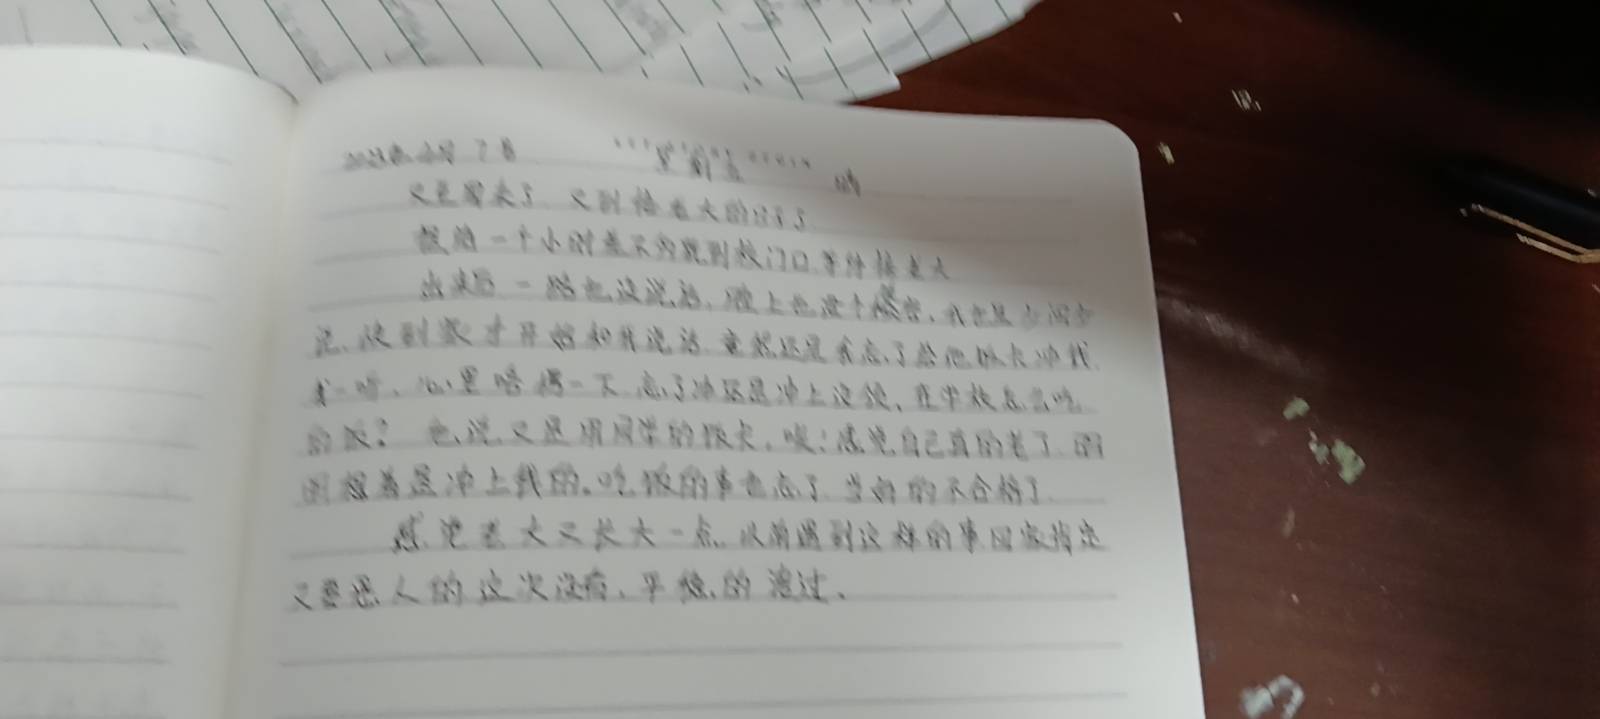 2023年 月 7日 星期五 晴
又是周末了 又到接老大的日子了
提前一个小时差不多就到校门口等待接老大
出来后 一路也没说话，脸上也没个 ，我也是少问少
说，快到家才开始和我说话 竟然还是我忘了给他饭卡冲钱
我一听，心里咯噔一下 忘了冲还是冲上没领，在学校怎么吃
的饭？ 他说又是用同学的饭卡，唉；感觉自己真的老了 明
明想着是冲上钱的，吃饭的事也忘了 当妈的不合格了
感觉老大又长大一点 以前遇到这样的事回家指定
又要 人的 这次没有，平稳的渡过。